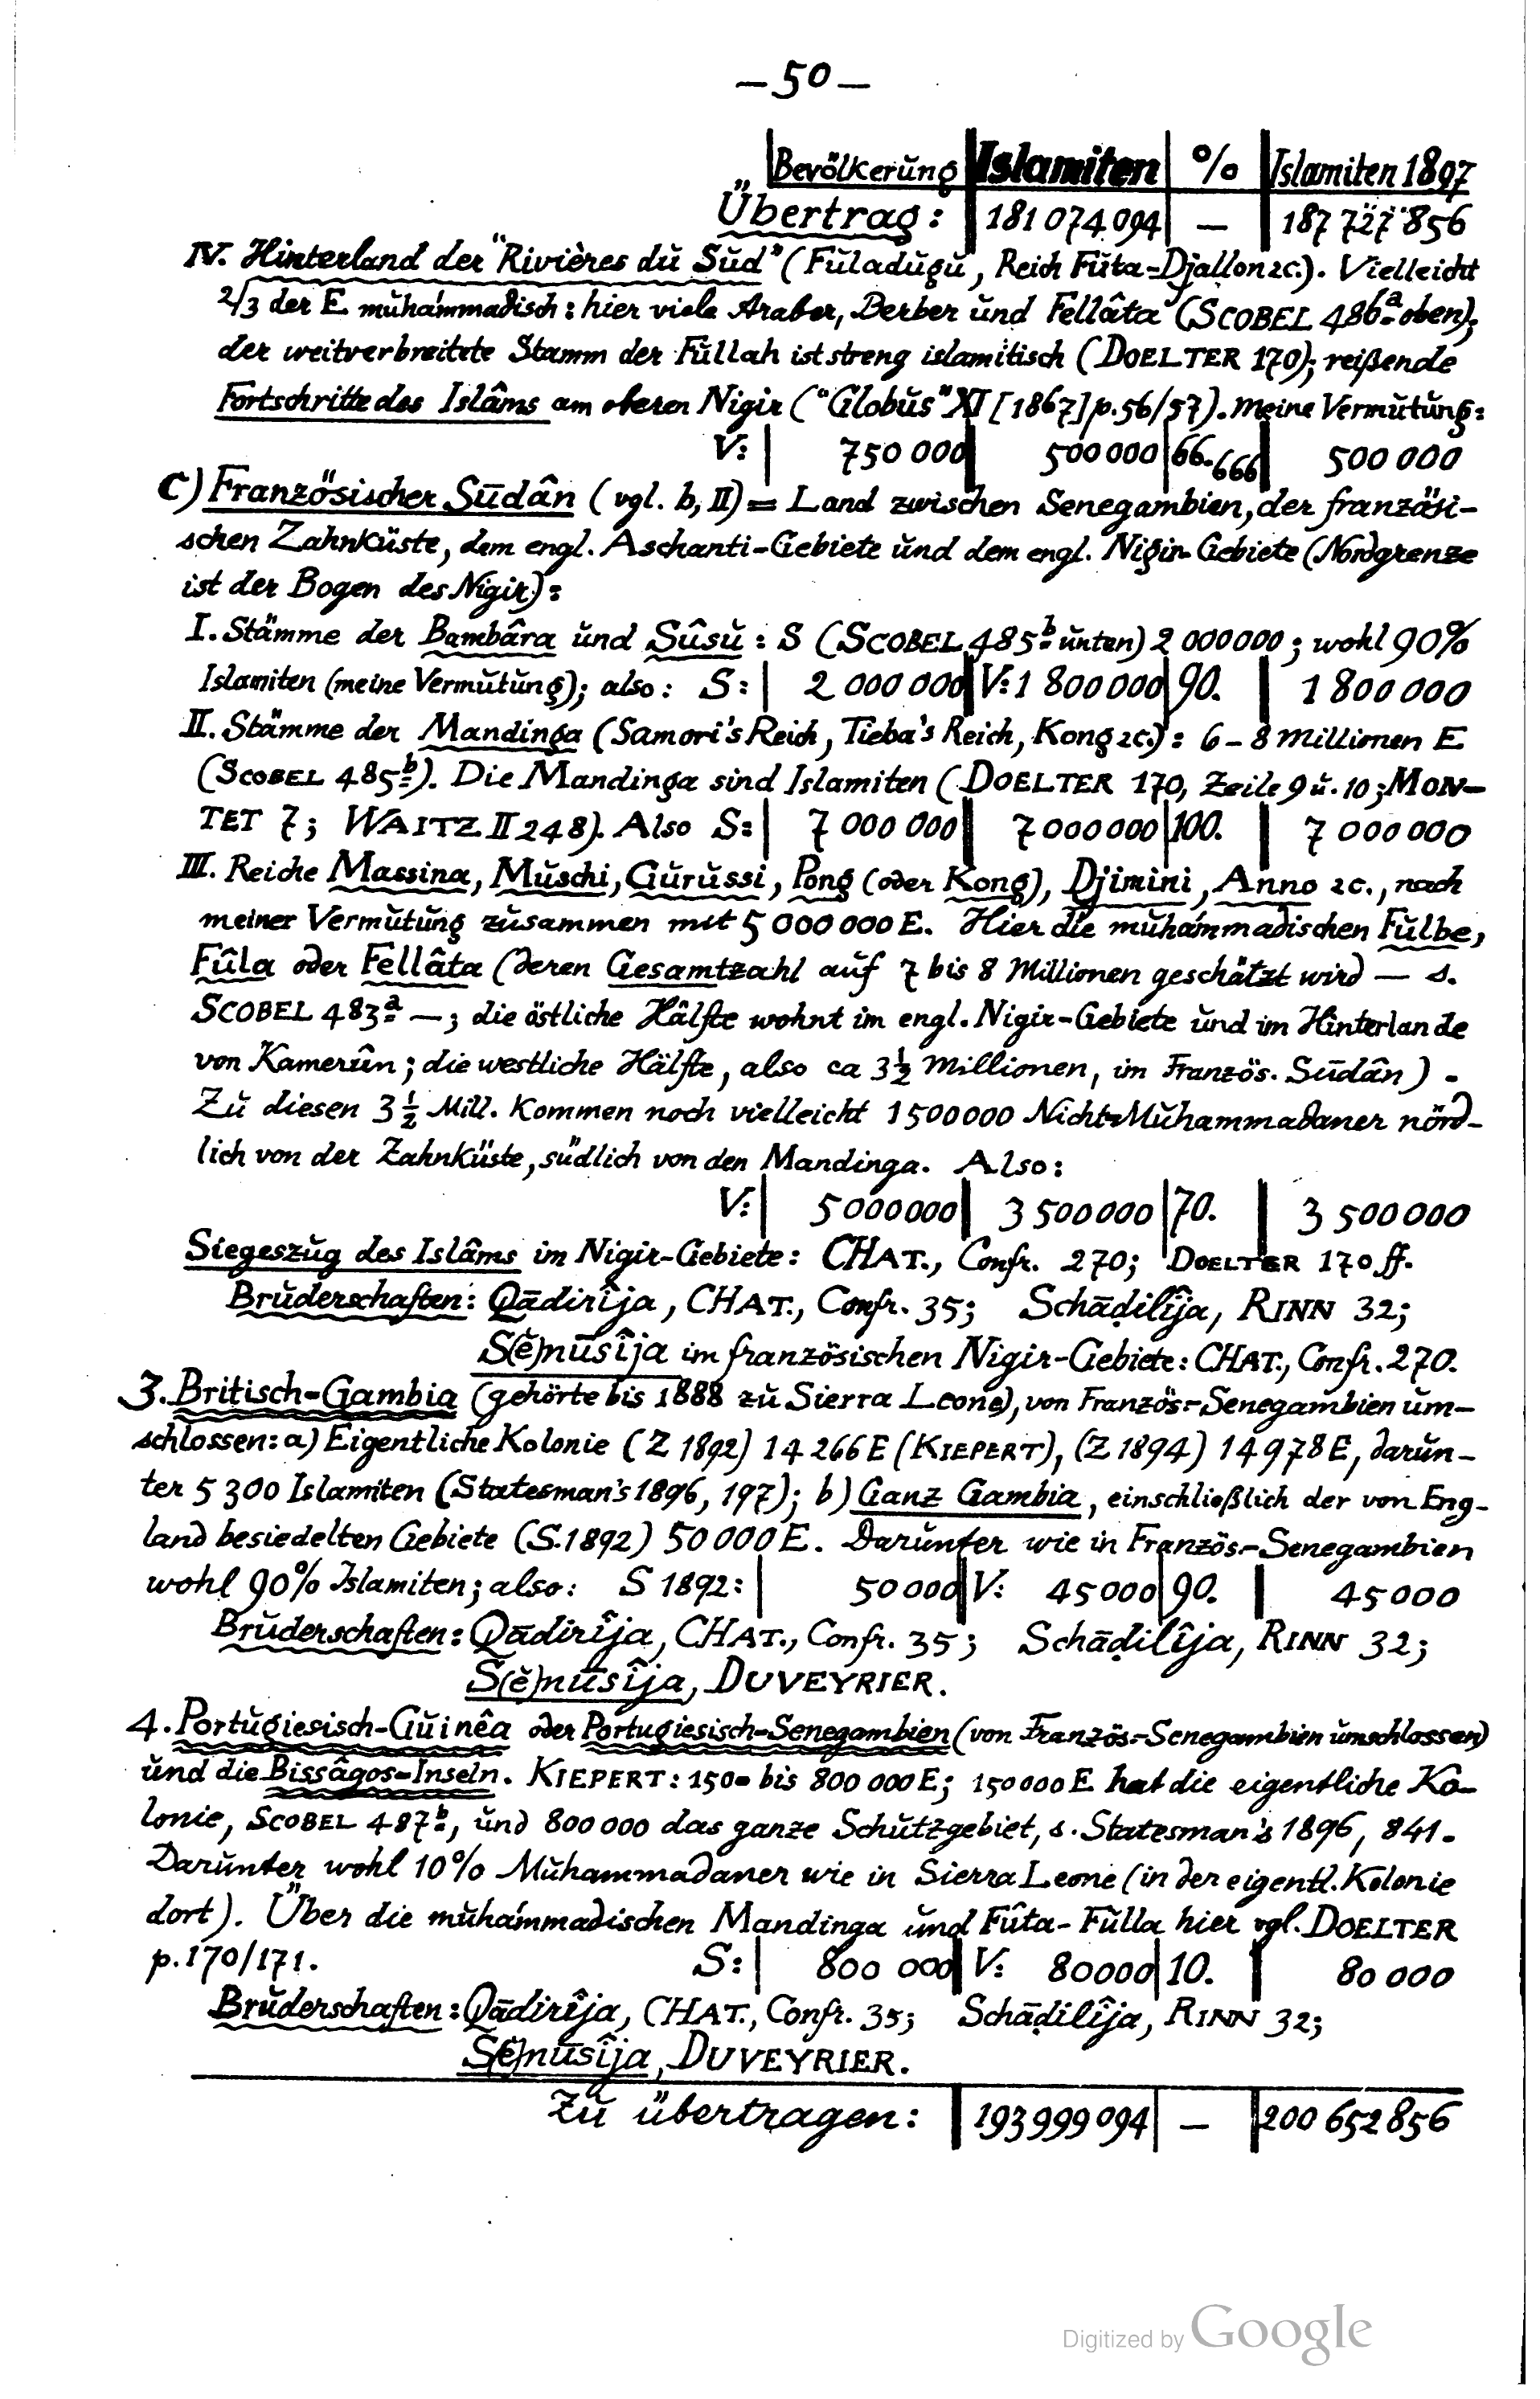 — 50 —
Bevölkerung | Islamiten | % | Islamiten 1897
Übertrag: | 181 074 094 | — | 187 727 856
IV. Hinterland der "Rivières du Sud" (Fuladugu, Reich Futa-Djallon 2c.). Vielleicht
2/3 der E. muhámmadisch: hier viele Araber, Berber und Fellâta (SCOBEL 486a oben);
der weitverbreitete Stamm der Fullah ist streng islamitisch (DOELTER 170); reißende
Fortschritte des Islâms am oberen Nigir ("Globus" XI [1867] p. 56/57). Meine Vermutung:
V: | 750 000 | 500 000 | 66.666 | 500 000
C) Französischer Sūdân (vgl. b, II) = Land zwischen Senegambien, der französi-
schen Zahnküste, dem engl. Aschanti-Gebiete und dem engl. Nigir-Gebiete (Nordgrenze
ist der Bogen des Nigir):
I. Stämme der Bambâra und Sûsu: S (SCOBEL 485b unten) 2 000 000; wohl 90%
Islamiten (meine Vermutung); also: S: | 2 000 000 | V: 1 800 000 | 90. | 1 800 000
II. Stämme der Mandinga (Samori's Reich, Tieba's Reich, Kong 2c.): 6–8 Millionen E
(SCOBEL 485b). Die Mandinga sind Islamiten (DOELTER 170, Zeile 9 u. 10; MON-
TET 7; WAITZ II 248). Also S: | 7 000 000 | 7 000 000 | 100. | 7 000 000
III. Reiche Massina, Muschi, Gurussi, Pong (oder Kong), Djimini, Anno 2c., nach
meiner Vermutung zusammen mit 5 000 000 E. Hier die muhámmadischen Fulbe,
Fûla oder Fellâta (deren Gesamtzahl auf 7 bis 8 Millionen geschätzt wird — s.
SCOBEL 483a —; die östliche Hälfte wohnt im engl. Nigir-Gebiete und im Hinterlande
von Kamerûn; die westliche Hälfte, also ca 3½ Millionen, im Französ. Sūdân).
Zu diesen 3½ Mill. kommen noch vielleicht 1 500 000 Nicht-Muhammadaner nörd-
lich von der Zahnküste, südlich von den Mandinga. Also:
V: | 5 000 000 | 3 500 000 | 70. | 3 500 000
Siegeszug des Islâms im Nigir-Gebiete: CHAT., Confr. 270; DOELTER 170 ff.
Bruderschaften: Qādirîja, CHAT., Confr. 35; Schāḍilîja, RINN 32;
S(ĕ)nūsîja im französischen Nigir-Gebiete: CHAT., Confr. 270.
3. Britisch-Gambia (gehörte bis 1888 zu Sierra Leone), von Französ.-Senegambien um-
schlossen: a) Eigentliche Kolonie (Z 1892) 14 266 E (KIEPERT), (Z 1894) 14 978 E, darun-
ter 5 300 Islamiten (Statesman's 1896, 197); b) Ganz Gambia, einschließlich der von Eng-
land besiedelten Gebiete (S. 1892) 50 000 E. Darunter wie in Französ.-Senegambien
wohl 90% Islamiten; also: S 1892: | 50 000 | V: 45 000 | 90. | 45 000
Bruderschaften: Qādirîja, CHAT., Confr. 35; Schāḍilîja, RINN 32;
S(ĕ)nūsîja, DUVEYRIER.
4. Portugiesisch-Guinêa oder Portugiesisch-Senegambien (von Französ.-Senegambien umschlossen)
und die Bissâgos-Inseln. KIEPERT: 150- bis 800 000 E; 150 000 E hat die eigentliche Ko-
lonie, SCOBEL 487b, und 800 000 das ganze Schutzgebiet, s. Statesman's 1896, 841.
Darunter wohl 10% Muhammadaner wie in Sierra Leone (in der eigentl. Kolonie
dort). Über die muhámmadischen Mandinga und Fûta-Fulla hier vgl. DOELTER
p. 170/171. S: | 800 000 | V: 80 000 | 10. | 80 000
Bruderschaften: Qādirîja, CHAT., Confr. 35; Schāḍilîja, RINN 32;
S(ĕ)nūsîja, DUVEYRIER.
Zu übertragen: | 193 999 094 | — | 200 652 856
Digitized by Google